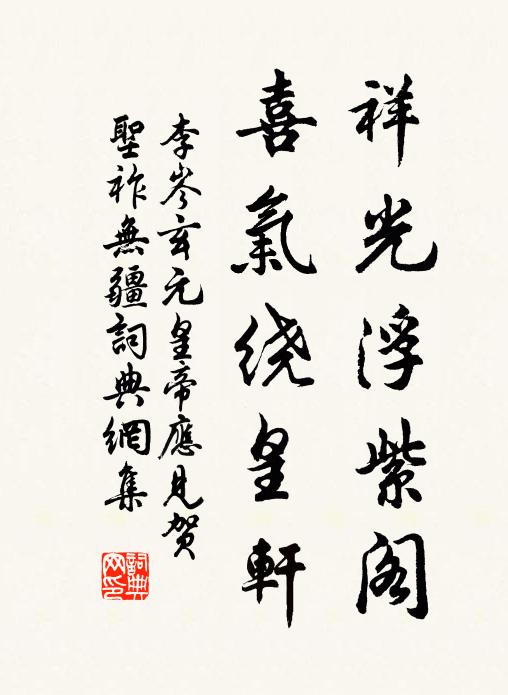 祥光浮紫阁
喜氣绕皇軒
李岑玄元皇帝應見賀
聖祚無疆詞典網集
詞典網印